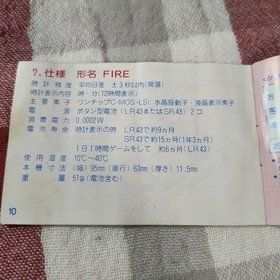 7. 仕様 形名 FIRE
時計精度 平均日差 ±3秒以内(常温)
時計表示内容 時・分(12時間表示)
主要素子 ワンチップC-MOS-LSI, 水晶振動子・液晶表示素子
電源 ボタン型電池(LR43またはSR43) 2コ
消費電力 0.0002W
電池寿命 時計表示の時 LR43で約9ヵ月
SR43で約15ヵ月(1年3ヵ月)
1日1時間ゲームをして 約6ヵ月(LR43)
使用温度 10℃~40℃
本機寸法 (幅)95mm(奥行)63mm(厚さ)11.5mm
重量 51g(電池含む)
10